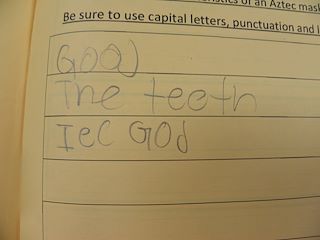 ristics of an Aztec mask
Be sure to use capital letters, punctuation and l
The teeth
IeC GOd